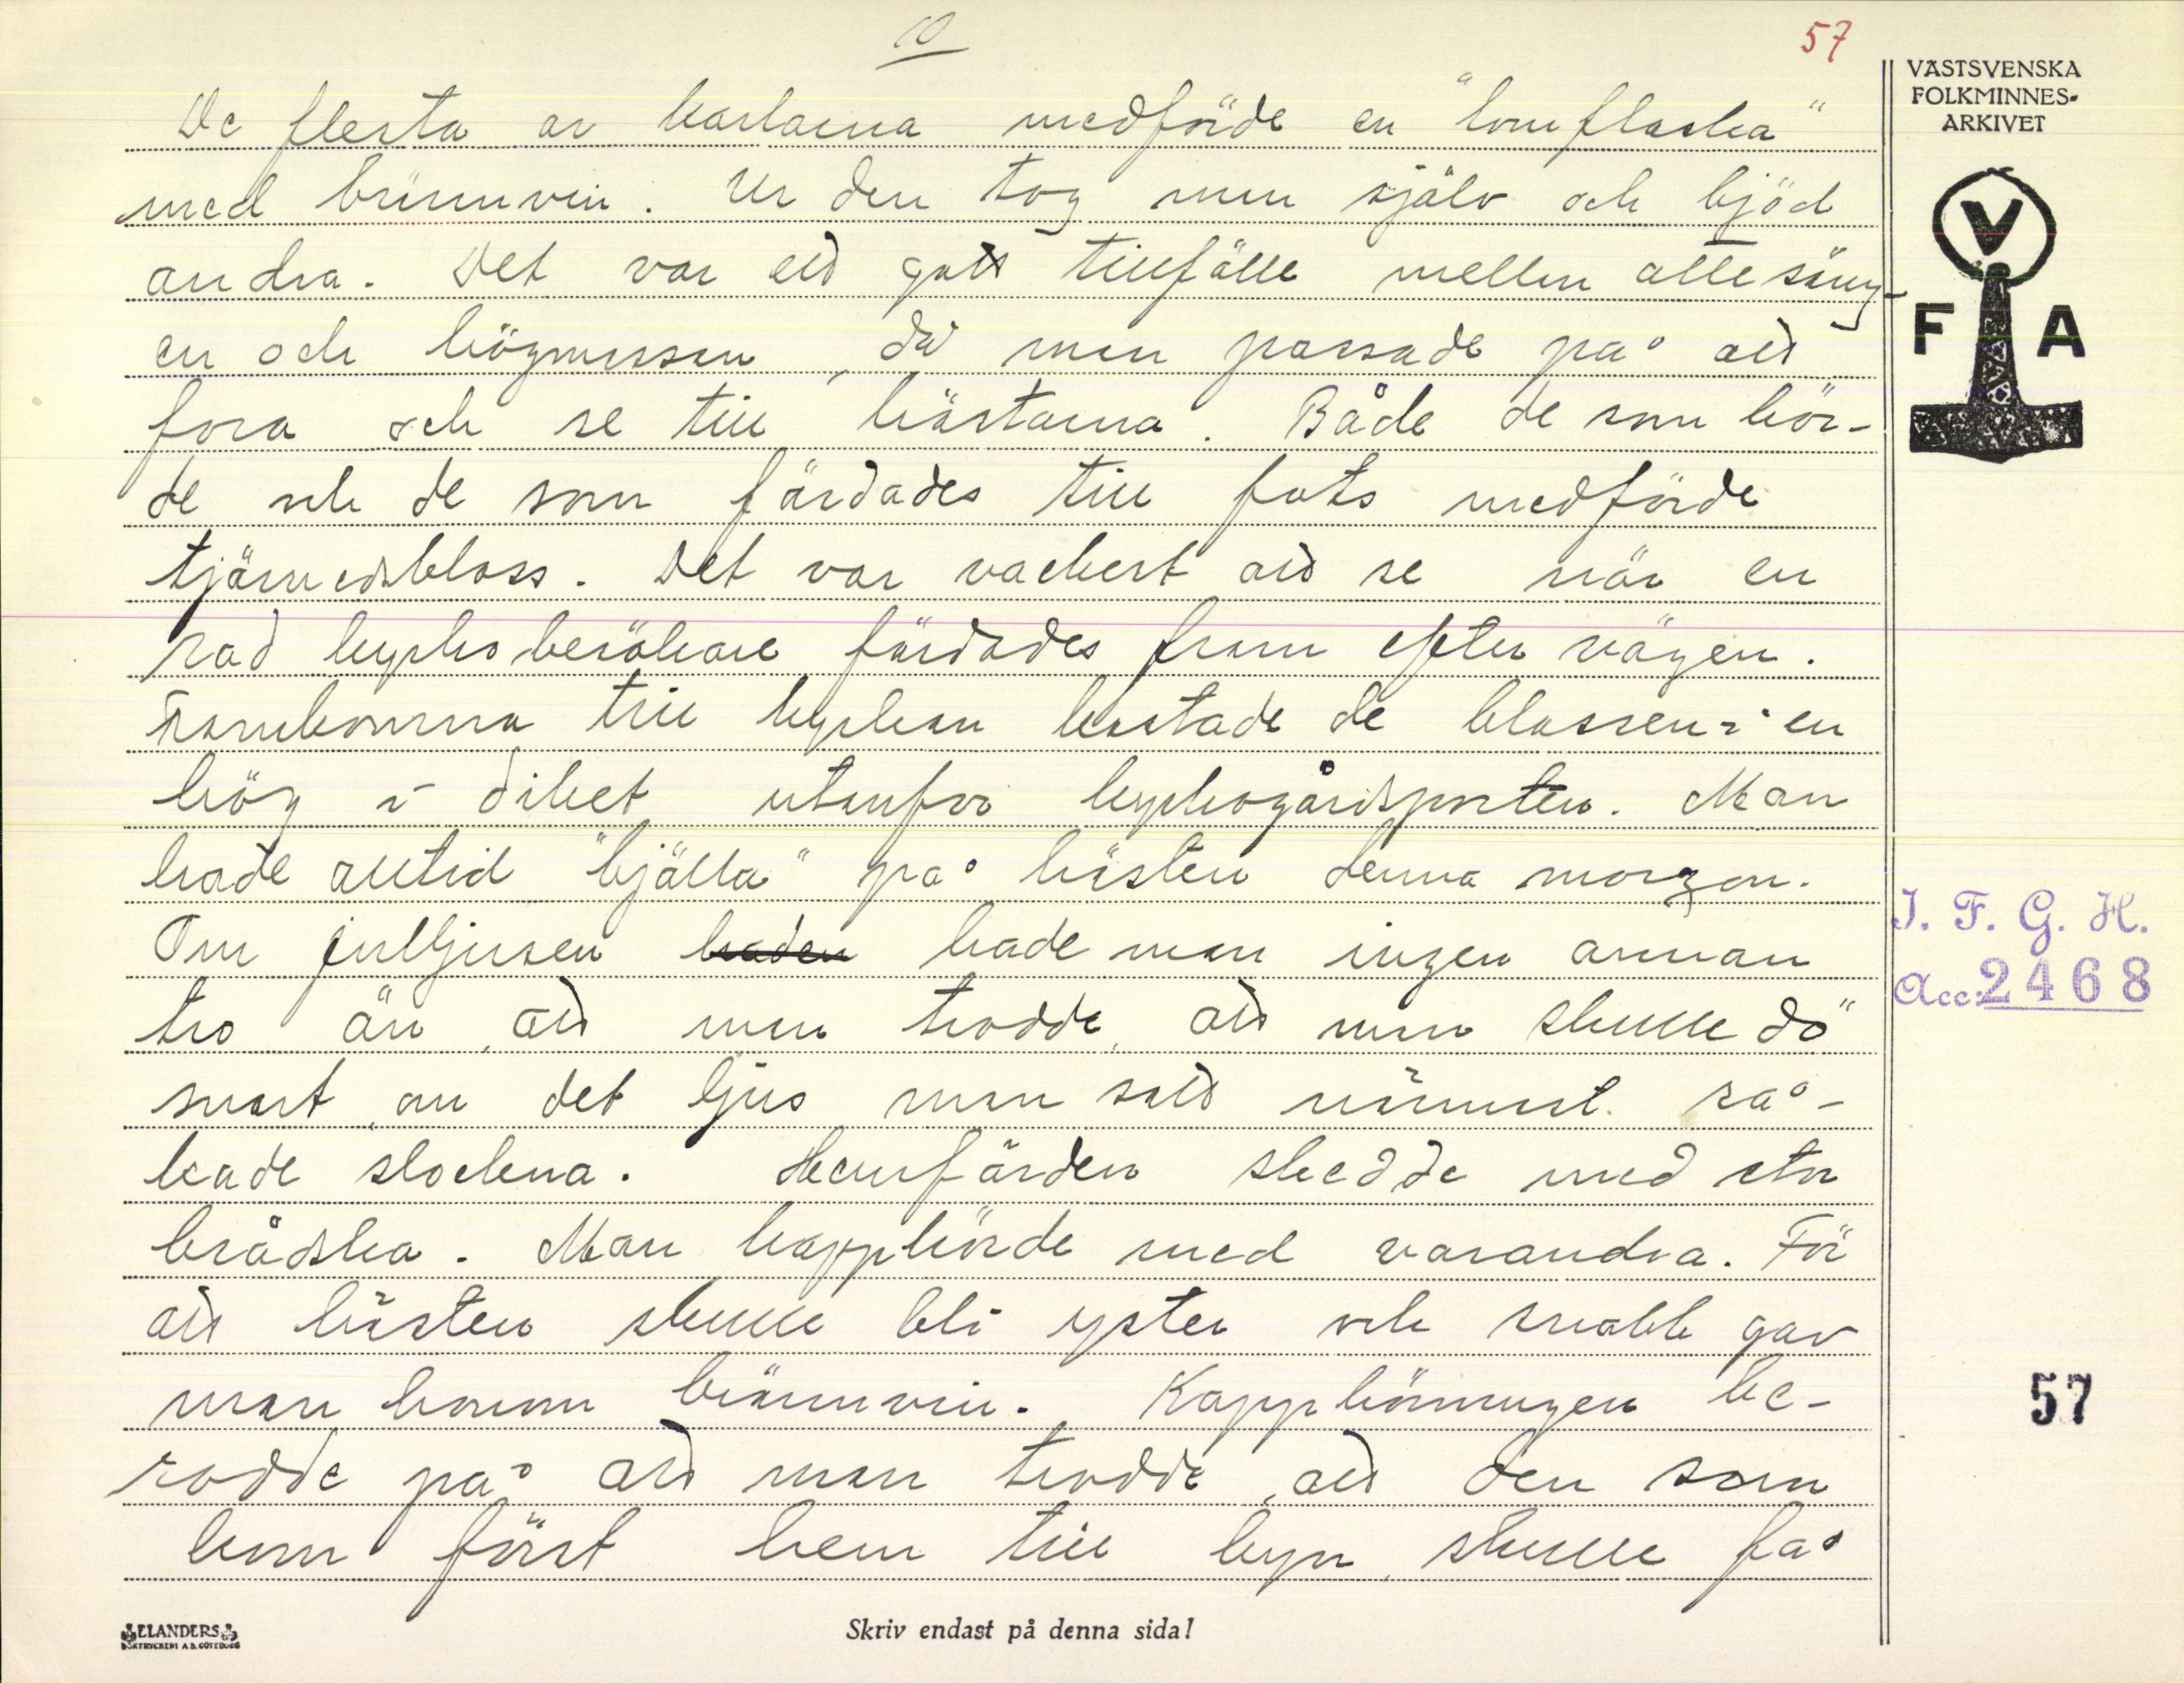 10
57
VÄSTSVENSKA
FOLKMINNES-
ARKIVET
De flesta av karlarna medförde en "lomflaska"
med brännvin. Ur den tog man själv och bjöd
andra. Det var ett gott tillfälle mellan ottesång-
en och högmässan, då man passade på att
fora och se till hästarna. Både de som kör-
de och de som färdades till fots medförde
tjärvedsbloss. Det var vackert att se när en
rad kyrkobesökare färdades fram efter vägen.
Framkomna till kyrkan kastade de blossen i en
hög i diket utanför kyrkogårdsporten. Man
hade alltid "bjälla" på hästen denna morgon.
Om julljusen haden hade man ingen annan
tro än, att man trodde, att man skulle dö
snart, om det ljus man satt närmast rå-
kade slockna. Hemfärden skedde med stor
brådska. Man kappkörde med varandra. För
att hästen skulle bli yster och snabb gav
man honom brännvin. Kappkörningen be-
rodde på att man trodde, att den som
kom först hem till byn, skulle få
V
F A
I. F. G. H.
Acc: 2468
57
ELANDERS
BOKTRYCKERI A.B. GÖTEBORG
Skriv endast på denna sida!